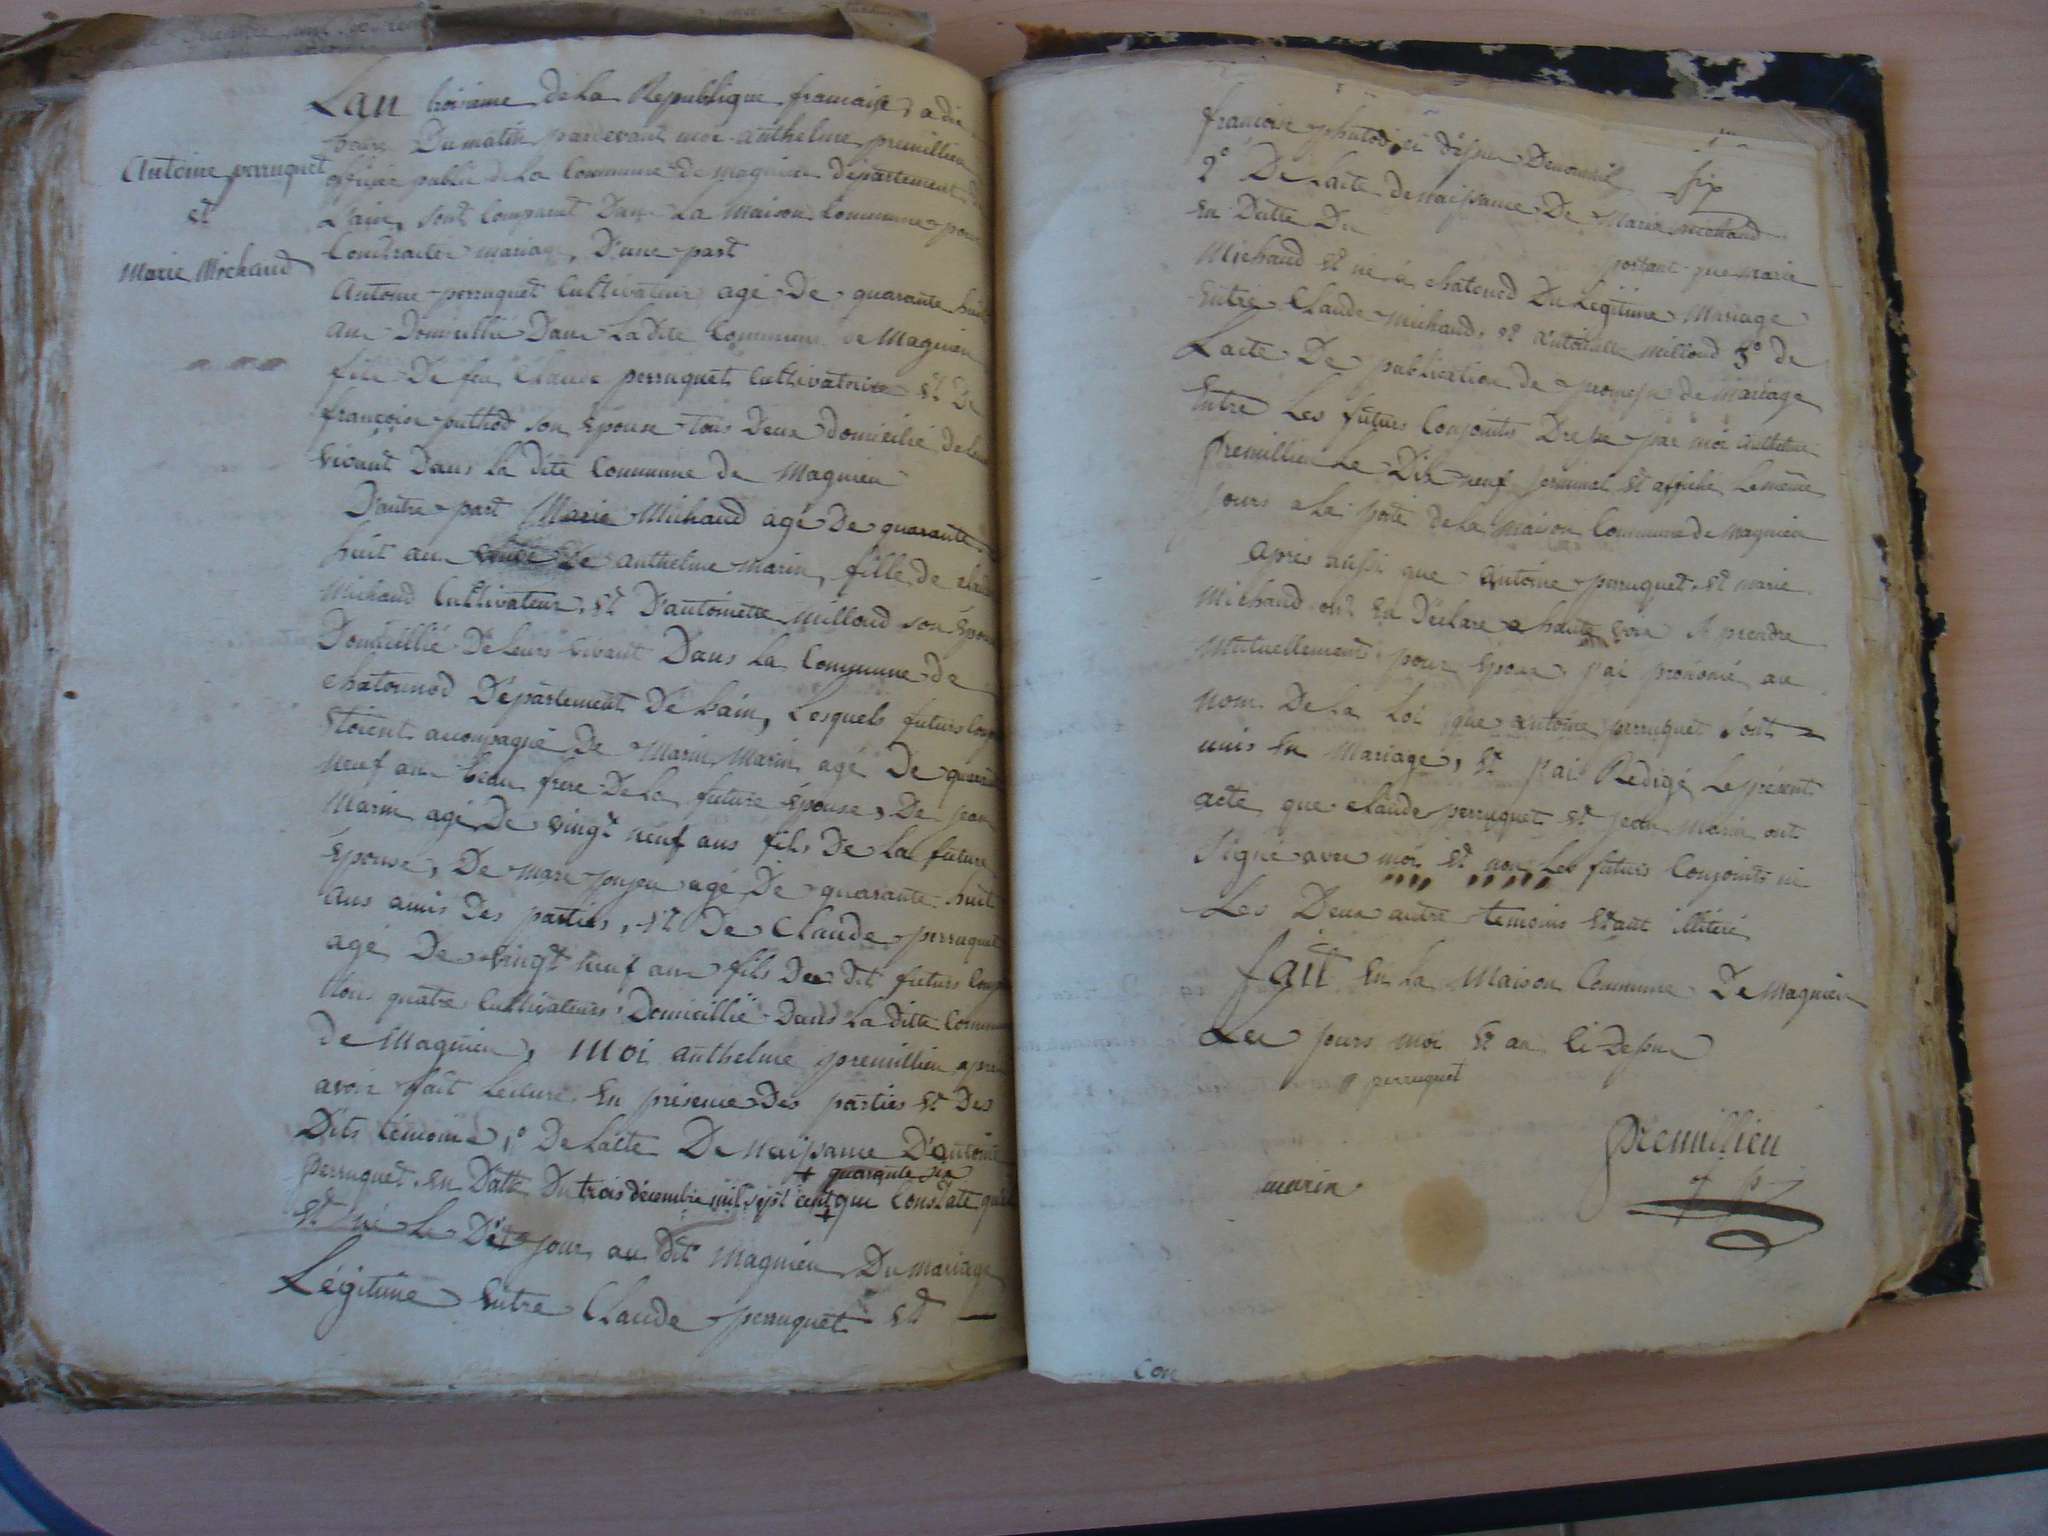 Lan troisieme de la Republique francaise, a dix
heure Du matin pardevant moi anthelme premillieu
officier public de la Commune de magnieu departement de
L'ain, sont Comparut Dans La Maison Commune pour
Contracter mariage, D'une part
Antoine perruquet
et
Marie Michaud
Antoine perruquet Cultivateur agé De quarante huit
ans Domicillié Dans La Dite Commune de Magnieu
fils De feu Claude perruquet Cultivateur et De
françoise puthod son épouse tous Deux domicilié de leur
vivant Dans la dite Commune de Magnieu
D'autre part Marie Michaud agé De quarante
huit ans anthelme marin, fille de claude
Michaud Cultivateur, et D'antoinette milloud son épouse
Domicillié De leurs vivant Dans la Commune de
chatounod Département De Lain, Lesquels futurs Conjoints
étoient acompagné De Marin Marin agé De quarante
neuf ans beau frere De la future épouse, De jean
Marin agé De vingt neuf ans fils De La future
épouse, De marc joujou agé De quarante huit
ans amis Des parties, et De Claude perruquet
agé De vingt neuf ans fils Du Dit futurs Conjoints
tous quatre Cultivateurs Domicillié Dans La Ditte Commune
de Magnieu, Moi anthelme premillieu apres
avoir fait Lecture En présence Des parties et Des
Dits témoins, 1° De Lacte De Naissance D'antoine
+ quarante six
perruquet en Date Du trois décembre mil sept cent + que Constate qu'il
est né Le Dit jour au Dit Magnieu Du mariage
Légitime Entre Claude perruquet et
françoise phutod, ci Dessu Denommé
six
2° De Lacte de naissance De Marie michaud
en Datte Du
portant que marie
Michaud est né à chatonod Du Légitime Mariage
Entre Claude michaud, et antoinette milloud 3° de
Lacte De publication de promesse de mariage
Entre Les futurs Conjoints Dressé par moi anthelme
premillieu Le Dix neuf germinal et affiché Le même
jours a La porte de La maison Commune de magnieu
Apres aussi que Antoine perruquet et marie
Michaud ont eu Déclare a haute voix se prendre
Mutuellement pour Epoux, j'ai prononcé au
nom De La Loi que antoine perruquet sont
unis En Mariage, et j'ai Rédigé Le présent
acte que claude perruquet et jean Marin ont
Signé avec moi et non Les futurs Conjoints ni
Les Deux autre temoins etant illitéré
fait En La Maison Commune De Magnieu
Les jours moi et an ci Dessu
perruquet
Premillieu
marin
of p
Con